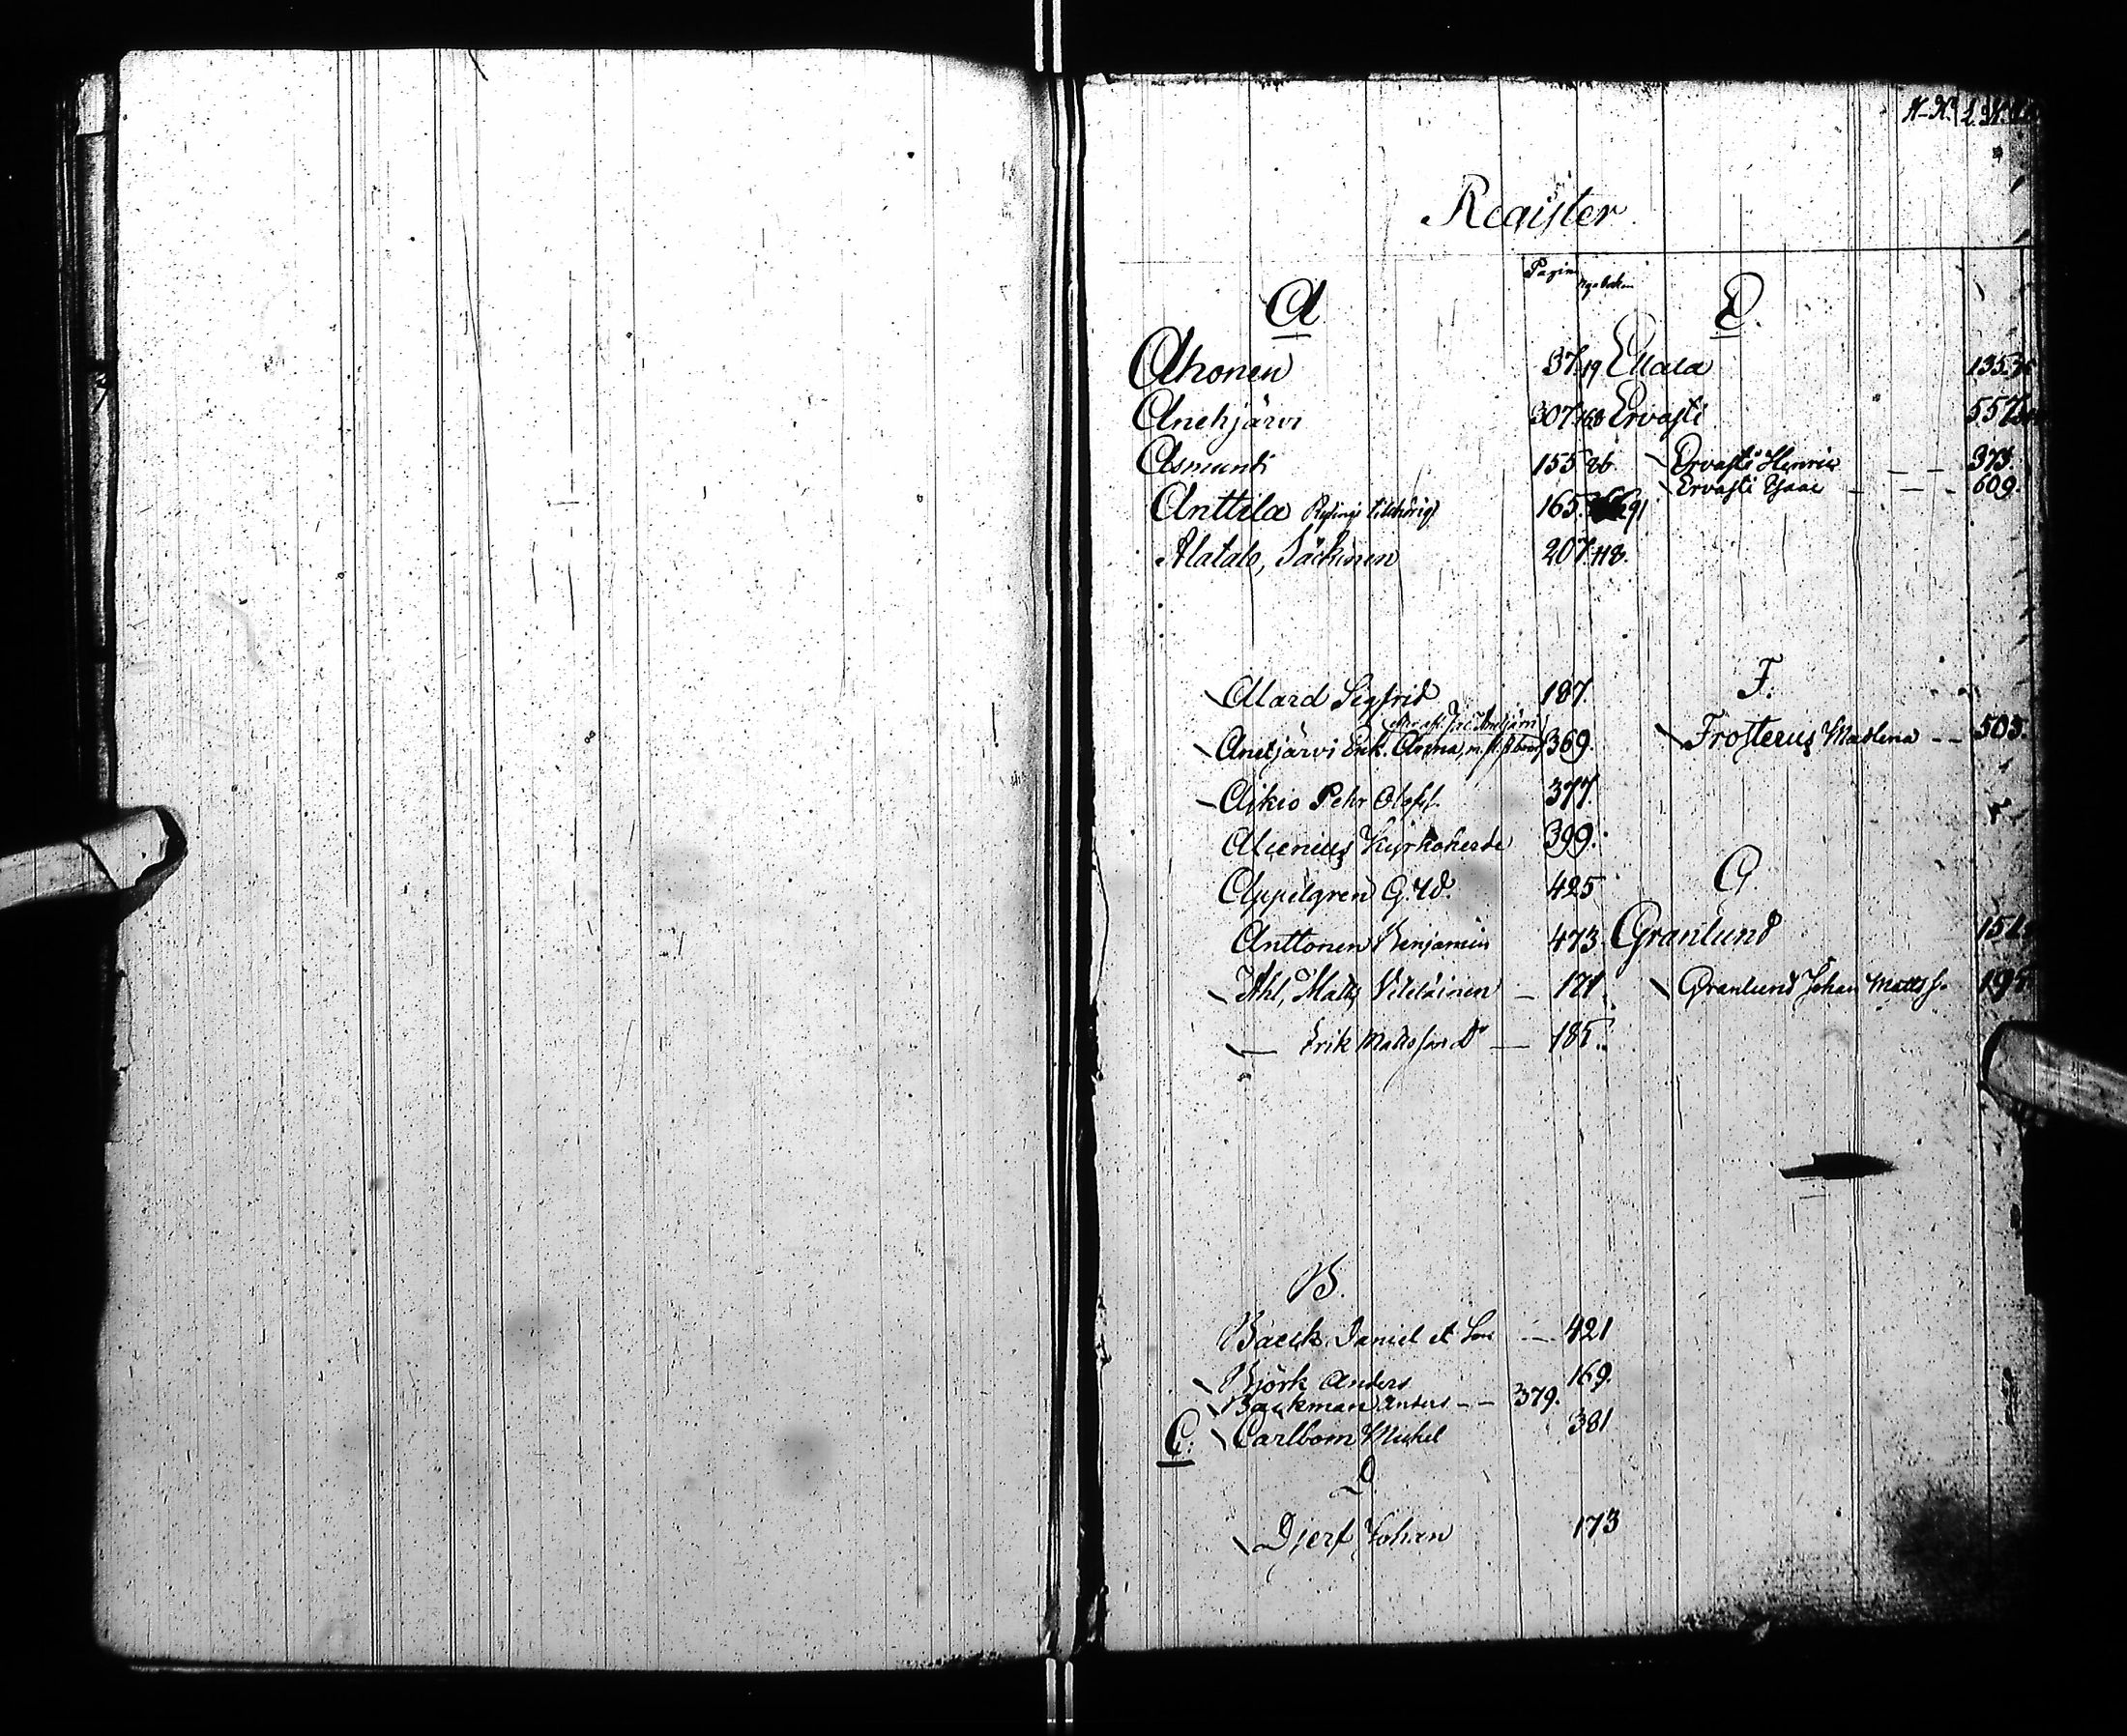 Register
Pagin
A
Ahonen 37. 19
Anehjärvi 307. 168
Asmunti 155 26
Anttila 165. 91
Alatalo, Säckinen 207. 118.
Alard Sigfrid 187.
Anetjärvi Enk. Anna 369.
Aikio Pehr Olofs. 377.
Alcenius Kyrkoherde 399.
Appelgren G. W. 425
Anttonen Benjamin 473.
Ahl, Matts Vileläinen — 171.
— Erik Mattsson d° — 185.
B.
Baeck Daniel et — 421
Björk Anders 169.
Backman Anders — — 379.
C. Carlbom Michel 381
D.
Djerf Johan 173
E.
Ellala 135.
Ervasti 557
Ervasti Henric — — 373.
Ervasti Isaac — — - 609.
F.
Frosterus Madlena — — 503.
G.
Granlund 151
Granlund Johan Matts s. 195